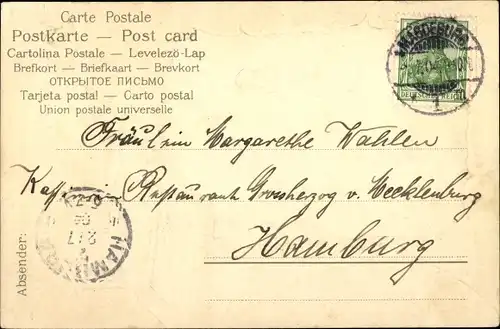 Carte Postale
Postkarte — Post card
Cartolina Postale — Levelező-Lap
Brefkort — Briefkaart — Brevkort
ОТКРЫТОЕ ПИСЬМО
Tarjeta postal — Carto postal
Union postale universelle
DEUTSCHES REICH
Fräulein Margarethe Wahlen
Kassirerin Restaurant Grossherzog v. Mecklenburg
Hamburg
HAMBURG
Absender: